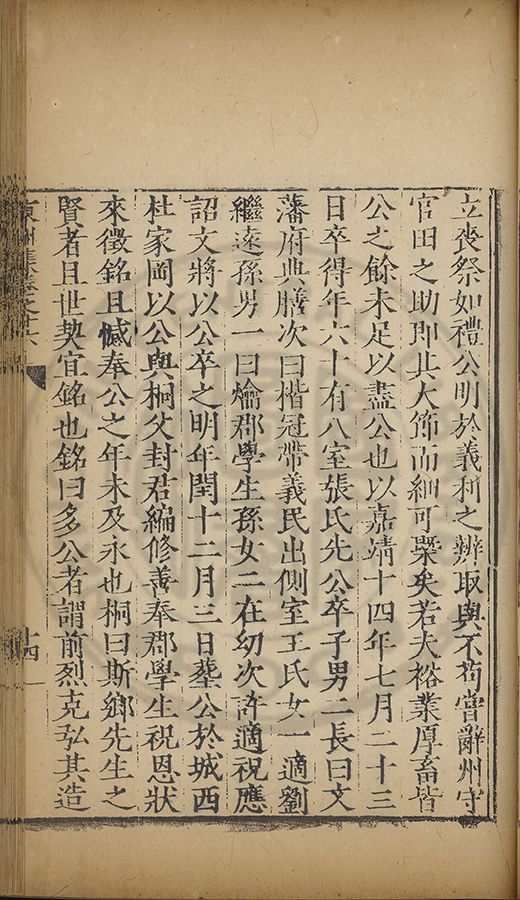 立喪祭如禮公明於義利之辨取與不苟嘗辭州守
官田之助即其大節而細可槩矣若夫裕業厚畜皆
公之餘未足以盡公也以嘉靖十四年七月二十三
日卒得年六十有八室張氏先公卒子男二長曰文
藩府典膳次曰楷冠帶義民出側室王氏女一適劉
繼遠孫男一曰爚郡學生孫女二在幼次許適祝應
詔文將以公卒之明年閏十二月三日塟公於城西
杜家岡以公與桐父封君編修善奉郡學生祝恩狀
來徵銘且慽奉公之年未及永也桐曰斯鄉先生之
賢者且世契宜銘也銘曰多公者謂前烈克弘其造
東州集卷之十六
十四